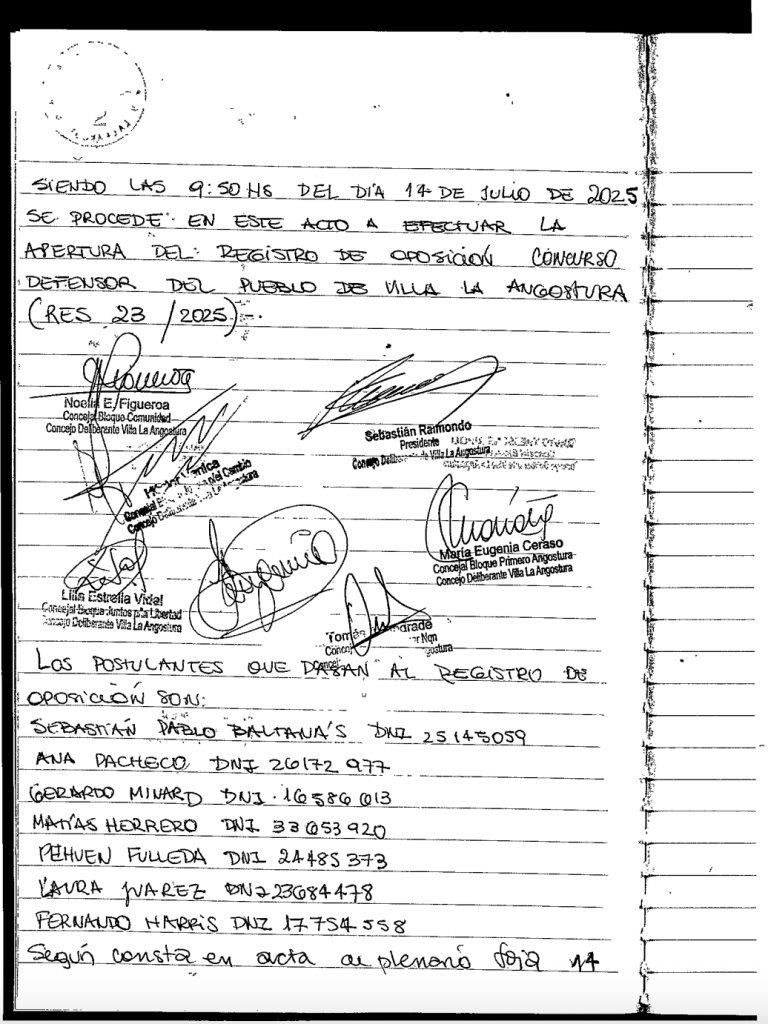 2
SIENDO LAS 9:50 HS DEL DIA 14 DE JULIO DE 2025
SE PROCEDE EN ESTE ACTO A EFECTUAR LA
APERTURA DEL REGISTRO DE OPOSICIÓN CONCURSO
DEFENSOR DEL PUEBLO DE VILLA LA ANGOSTURA
(RES 23 / 2025) -.
Noelia E. Figueroa
Concejal Bloque Comunidad
Concejo Deliberante Villa La Angostura
Sebastián Raimondo
Presidente
Concejo Deliberante de Villa La Angostura
del Cambio
Concejo Villa La Angostura
María Eugenia Ceraso
Concejal Bloque Primero Angostura
Concejo Deliberante Villa La Angostura
Lilia Estrella Vidal
Concejal Bloque Juntos por la Libertad
Concejo Deliberante Villa La Angostura
Eugenia
Tomás Andrade
Nqn
LOS POSTULANTES QUE PASAN AL REGISTRO DE
OPOSICIÓN SON:
SEBASTIÁN PABLO BALTANA'S DNI 25145059
ANA PACHECO DNI 26172 977
GERARDO MINARD DNI. 16586 013
MATÍAS HERRERO DNI 33053920
PEHUEN FULLEDA DNI 24485373
LAURA JUAREZ DNI 23684478
FERNANDO HARRIS DNI 17754558
Según consta en acta de plenario foja 14